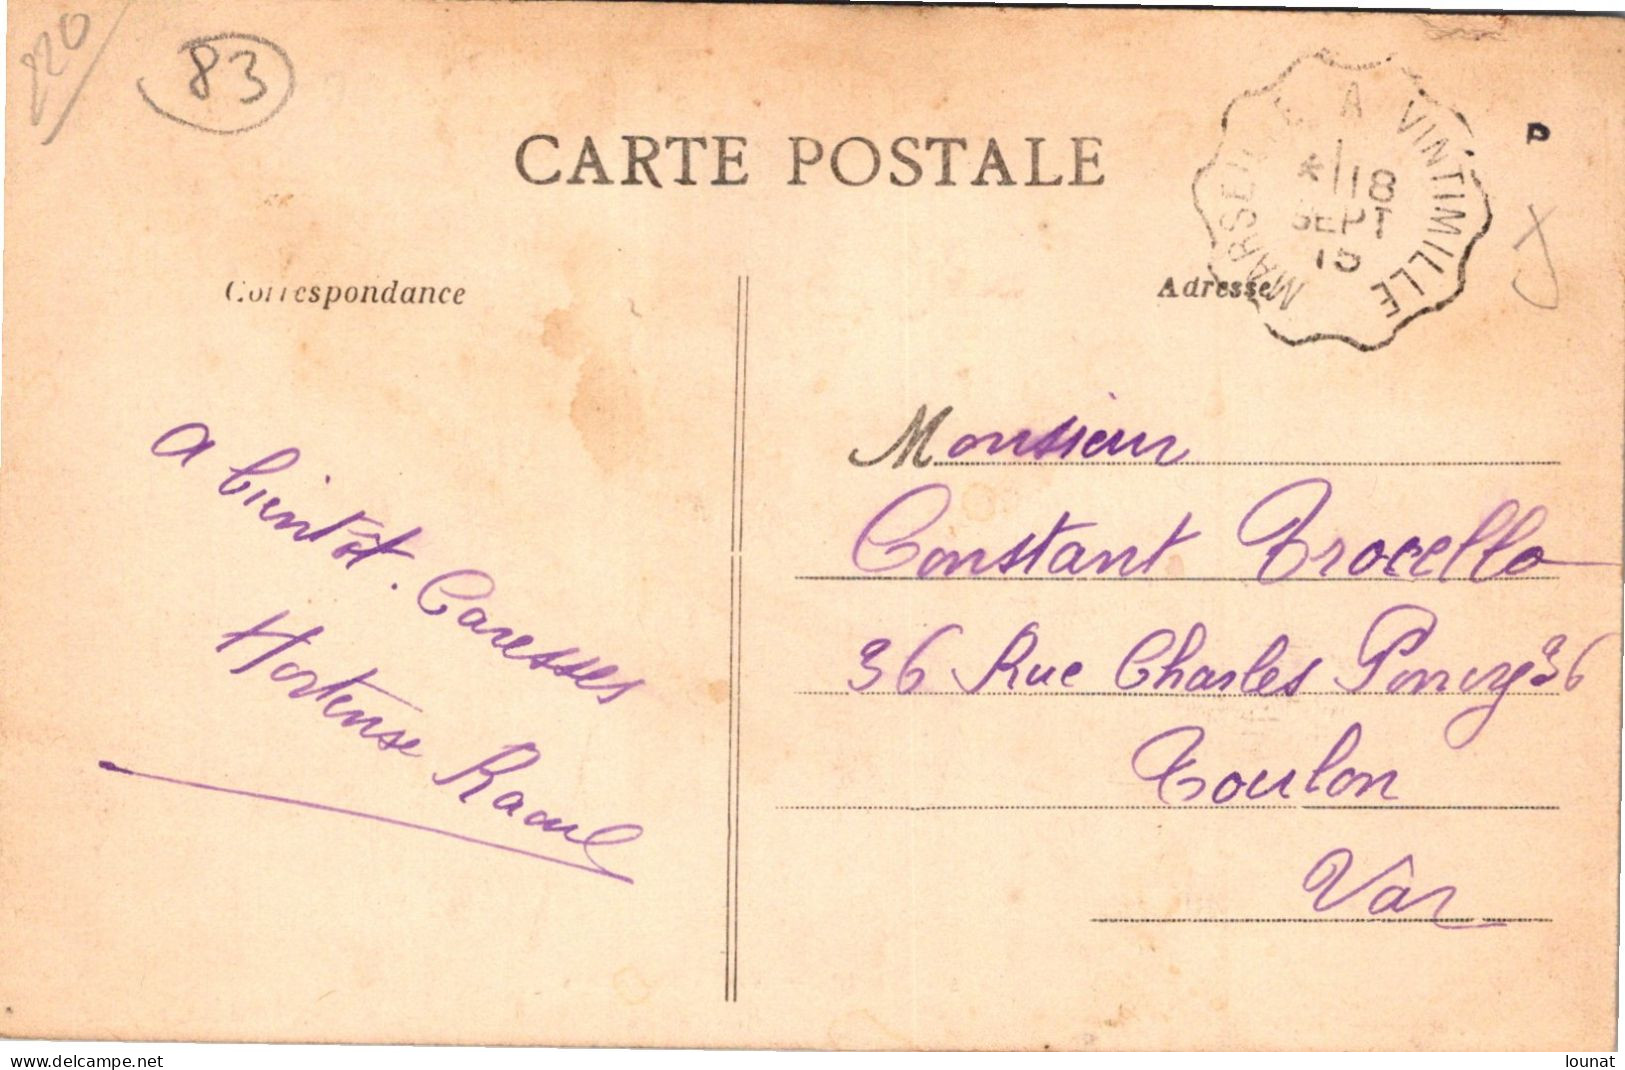 220
83
CARTE POSTALE
MARSEILLE A VINTIMILLE
* 18
SEPT
15
Correspondance
Adresse
Monsieur
Constant Trocello
36 Rue Charles Poncy 36
Toulon
Vâr
a bientôt. Caresses
Hortense Raoul
www.delcampe.net
lounat